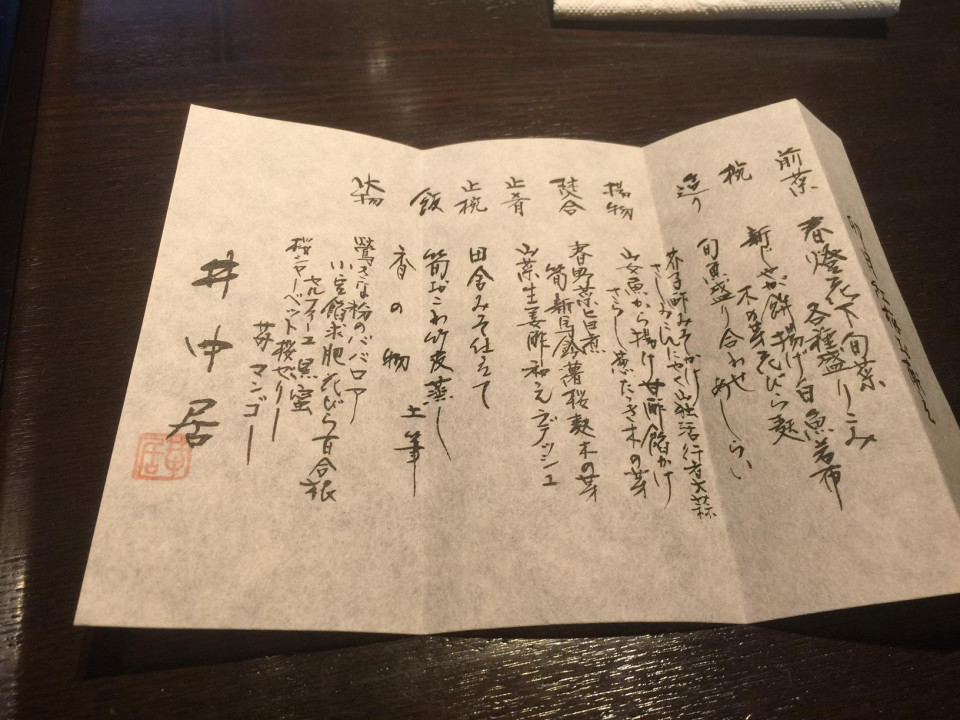 前菜 春燈花下旬菜
各種盛りこみ
椀 新じゃが餅揚げ白魚若布
木の芽花びら麩
造り 旬魚盛り合わせ あしらい
芥子酢みそかけ
さしみこんにゃく山独活行者大蒜
揚物 山女魚から揚げ甘酢餡かけ
さらし葱たたき木の芽
焚合 春野菜旨煮
筍新馬鈴薯桜麩木の芽
止肴 山菜生姜酢和えラディッシュ
止椀 田舎みそ仕立て
飯 筍おこわ竹皮蒸し
香の物 土筆
水物 鶯きな粉のババロア
小豆餡求肥花びら百合根
セルフィーユ黒蜜
桜シャーベット桜ゼリー
苺 マンゴー
井中居